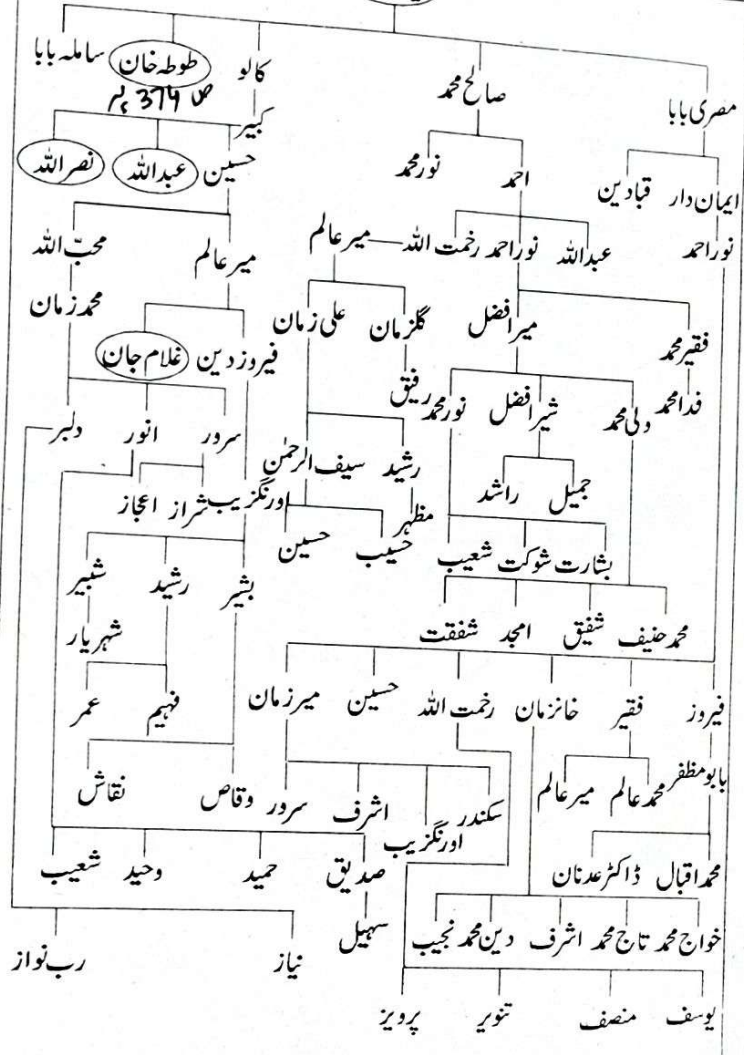 مصری بابا صالح محمد کالو طوطہ خان ساملہ بابا
ص 374 پر
کبیر
ایمان دار قبادین احمد نور محمد حسین عبداللہ نصراللہ
نور احمد عبداللہ نور احمد رخمت اللہ میر عالم میر عالم محبّ اللہ
فقیر محمد میر افضل گلزمان علی زمان فیروز دین غلام جان محمد زمان
فدا محمد ولی محمد شیر افضل نور محمد رفیق سرور انور دلبر
جمیل راشد رشید سیف الرحمٰن اورنگزیب شراز اعجاز
مظہر
بشارت شوکت شعیب حسیب حسین بشیر رشید شبیر
محمد حنیف شفیق امجد شفقت شہریار
فیروز فقیر خانزمان رخمت اللہ حسین میر زمان فہیم عمر
بابو مظفر محمد عالم میر عالم سکندر اورنگزیب اشرف سرور وقاص نقاش
محمد اقبال ڈاکٹر عدنان صدیق حمید وحید شعیب
خواج محمد تاج محمد اشرف دین محمد نجیب سہیل نیاز رب نواز
یوسف منصف تنویر پرویز